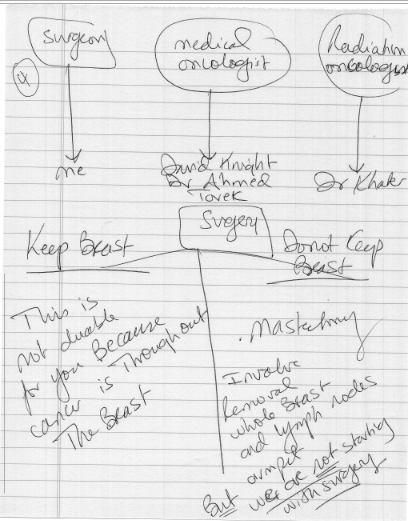 4
Surgery
medical
oncologist
Radiation
oncologist
me
David Knight
Dr Ahmed
Tarek
Dr Khater
Surgery
Keep Breast
Do not Keep
Breast
This is
not doable
for you Because
cancer is Throughout
The Breast
. Mastectomy
Involve
Removal
whole Breast
and lymph nodes
armpit
But we are not starting
with surgery